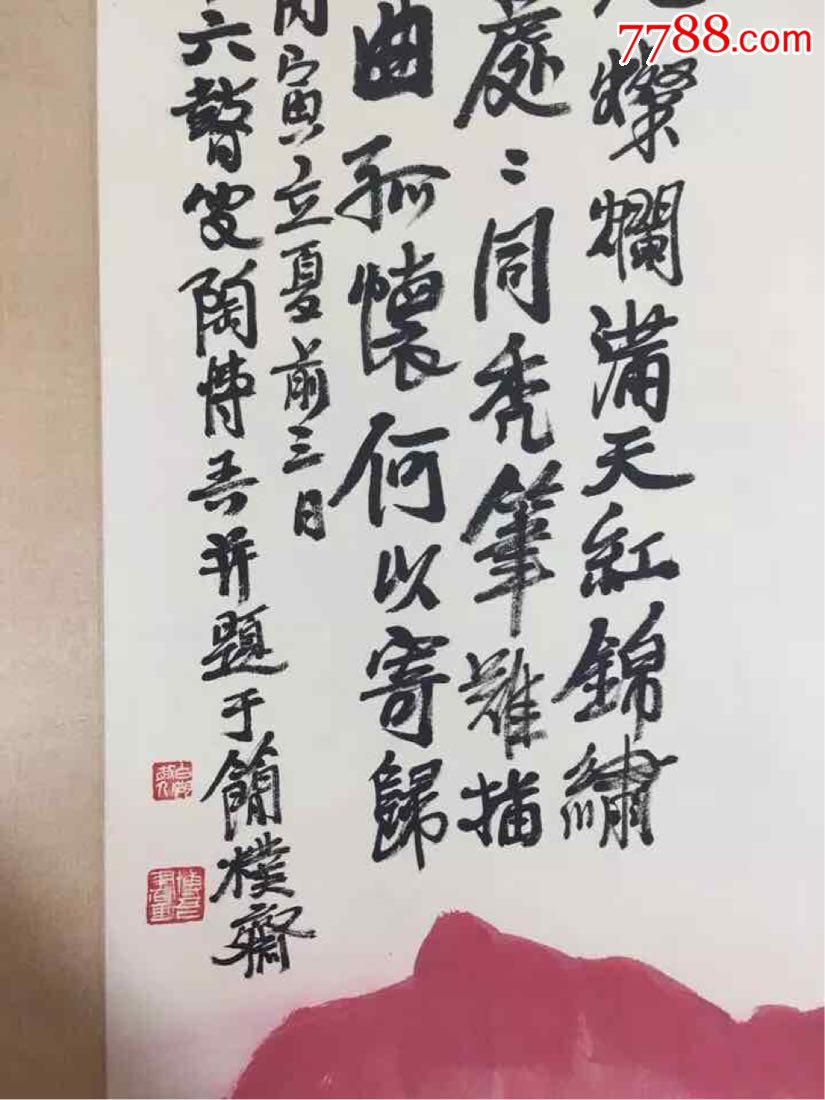 7788.com
燦爛滿天紅錦繡
處〻同秃筆難描
曲孤懷何以寄歸
丙寅立夏前三日
六瞽叟陶博吾并題于簡樸齋